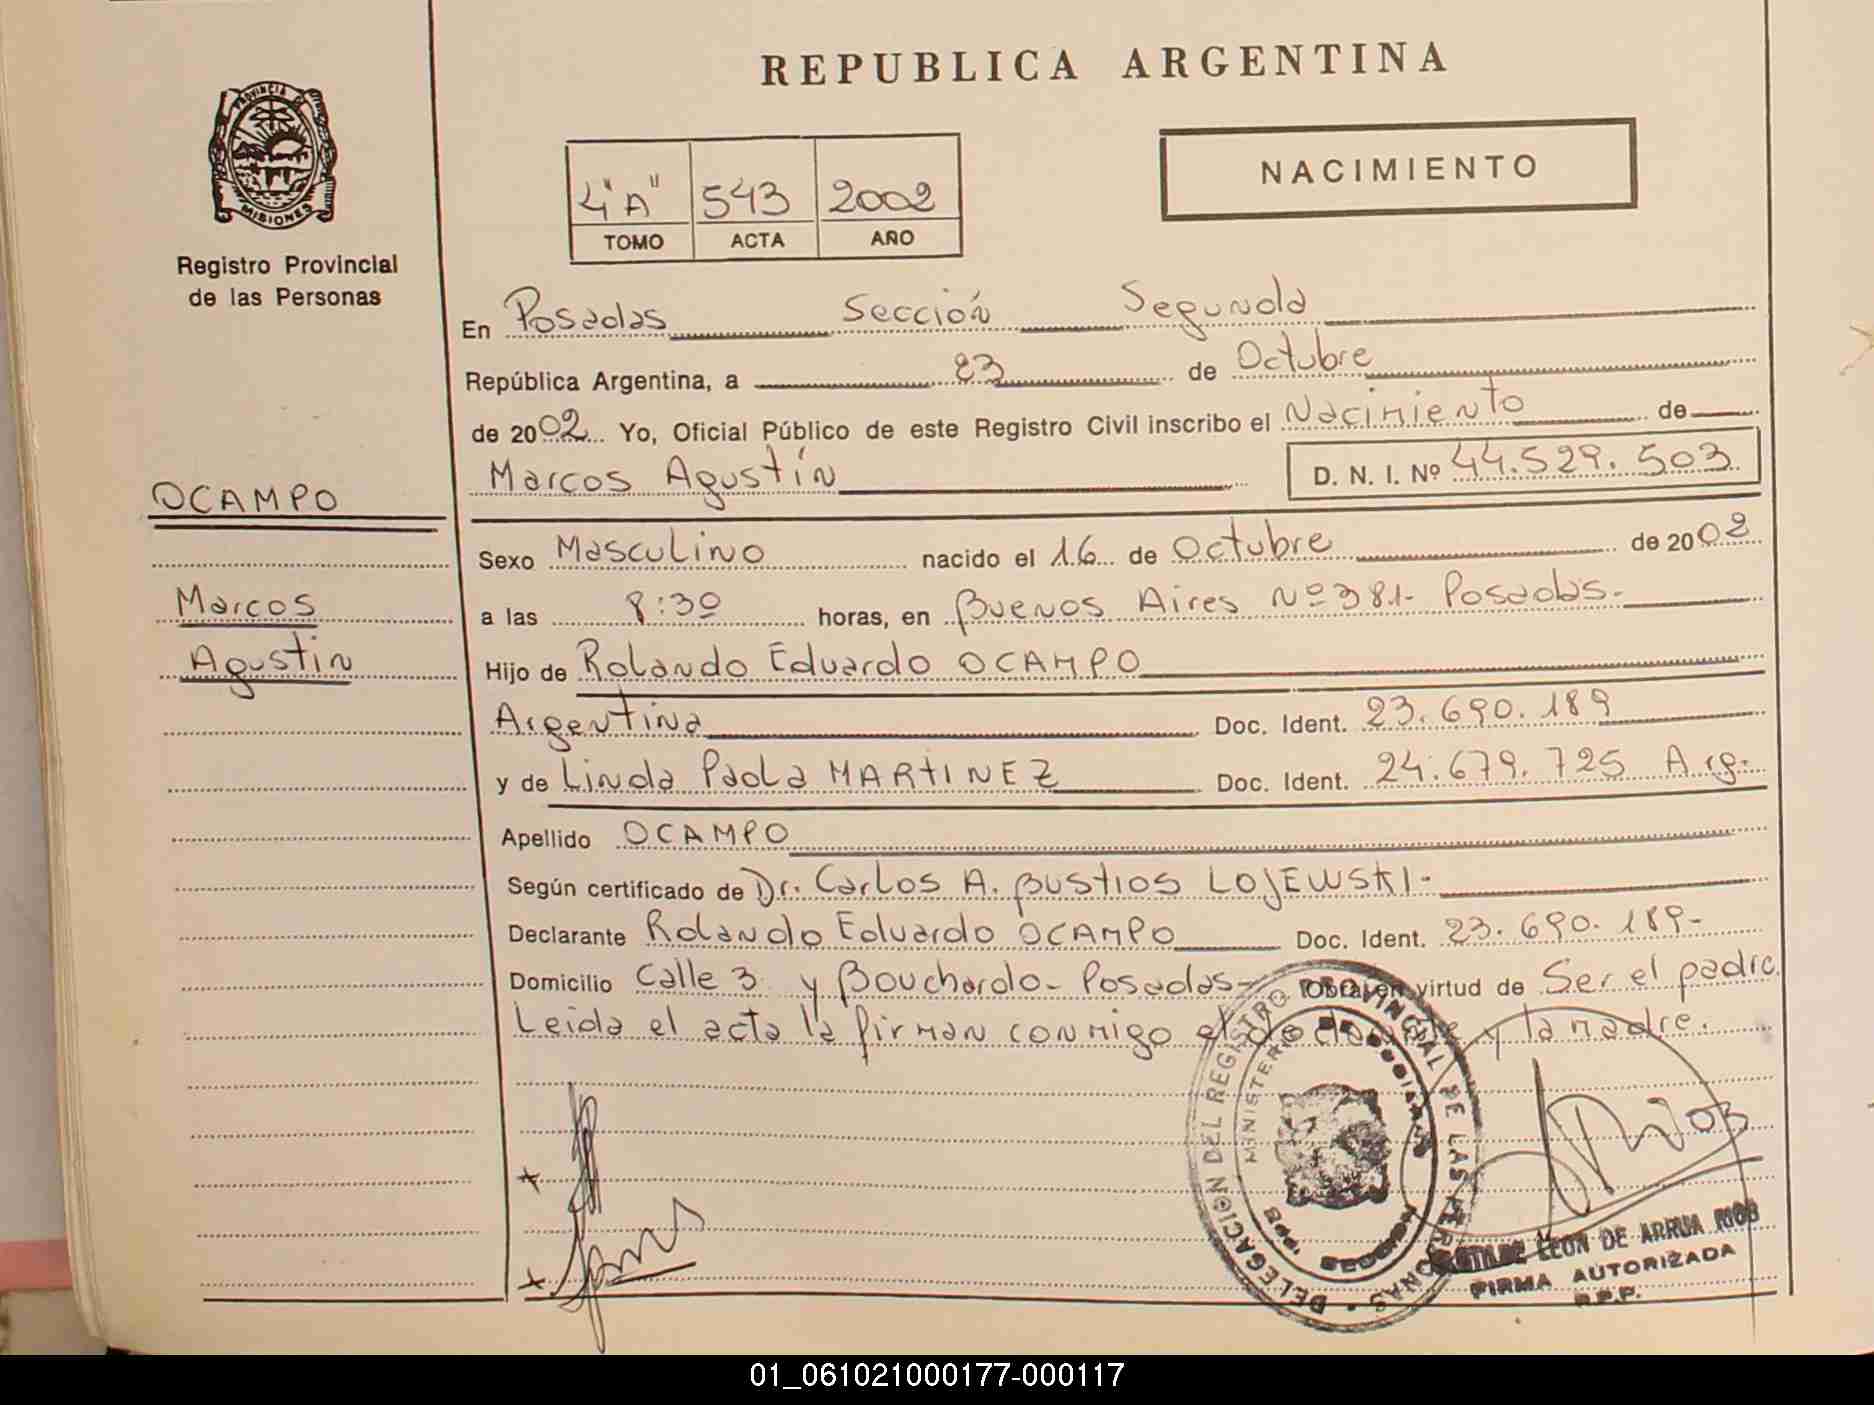 REPUBLICA ARGENTINA
PROVINCIA DE
MISIONES
Registro Provincial
de las Personas
4 "A" 543 2002
TOMO ACTA AÑO
NACIMIENTO
En Posadas Sección Segunda
República Argentina, a 23 de Octubre
de 2002 Yo, Oficial Público de este Registro Civil inscribo el Nacimiento de
Marcos Agustín D. N. I. Nº 44.529.503
OCAMPO
Marcos
Agustin
Sexo Masculino nacido el 16 de Octubre de 2002
a las 8:30 horas, en Buenos Aires Nº 381- Posadas.
Hijo de Rolando Eduardo OCAMPO
Argentina Doc. Ident. 23.690.189
y de Linda Paola MARTINEZ Doc. Ident. 24.679.725 Arg.
Apellido OCAMPO
Según certificado de Dr. Carlos A. BUSTIOS LOJEWSKI-
Declarante Rolando Eduardo OCAMPO Doc. Ident. 23.690.189-
Domicilio Calle 3 y Bouchardo- Posadas- Obra en virtud de Ser el padre.
Leida el acta la firman conmigo el declarante y la madre.
DELEGACION DEL REGISTRO PROVINCIAL DE LAS PERSONAS
MINISTERIO DE GOBIERNO
MISIONES
LEON DE ARRUA RIOS
FIRMA AUTORIZADA
R.P.P.
01_061021000177-000117